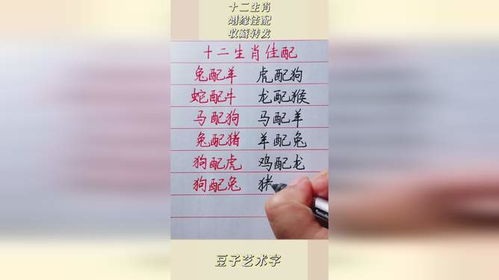 十二生肖
姻缘佳配
收藏转发
十二生肖佳配
兔配羊 虎配狗
蛇配牛 龙配猴
马配狗 马配羊
兔配猪 羊配兔
狗配虎 鸡配龙
狗配兔 猪
豆子艺术字